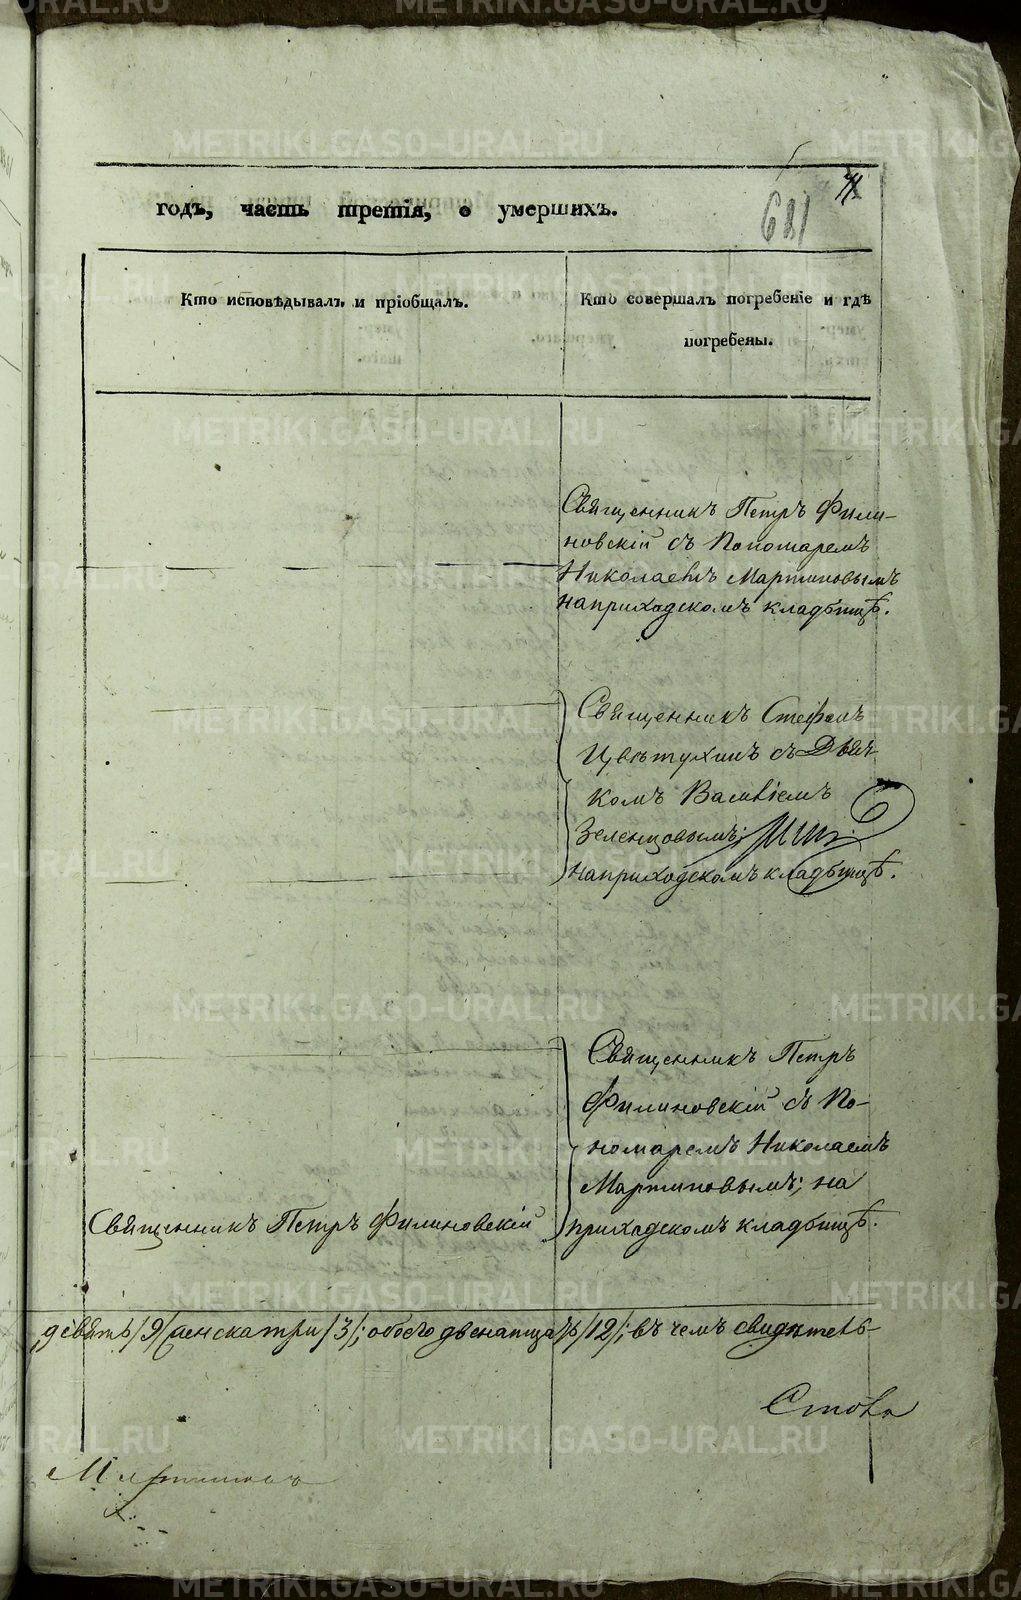 71
681
годъ, часть третія, о умершихъ.
Кто исповѣдывалъ и пріобщалъ.
Кто совершалъ погребеніе и гдѣ
погребены.
Священникъ Петръ Фили-
новскій съ Пономаремъ
Николаемъ Мартиновымъ
на приходскомъ кладбищѣ.
Священникъ Стефанъ
Цвѣтухинъ съ Дьяч-
комъ Васи­ліемъ
Зеленцовымъ;
на приходскомъ кладбищѣ.
Священникъ Петръ
Филиновскій съ По-
номаремъ Николаемъ
Мартиновымъ; на
Священникъ Петръ Филиновскій
приходскомъ кладбищѣ.
девять /9/ женска три /3/; обоего двенатцать /12/; въ чемъ свидѣтель-
Стова
Мартиновъ
METRIKI.GASO-URAL.RU